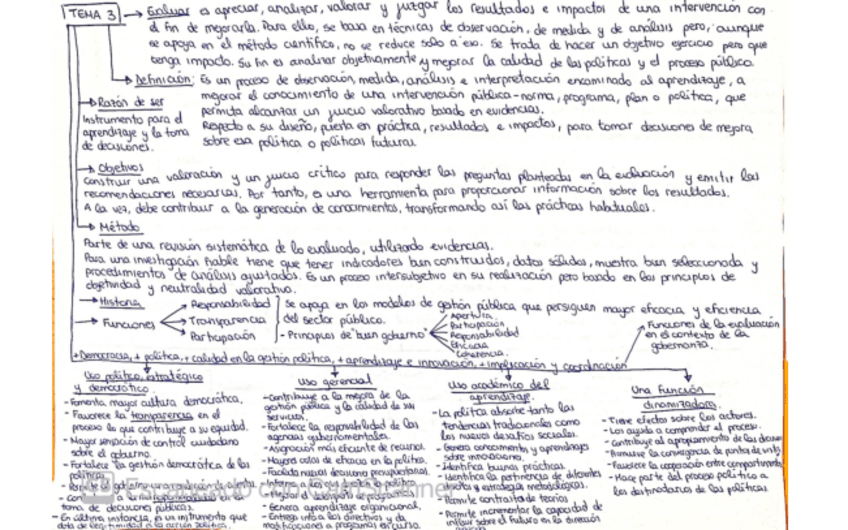 TEMA 3 → Evaluar es apreciar, analizar, valorar y juzgar los resultados e impactos de una intervención con
el fin de mejorarla. Para ello, se basa en técnicas de observación, de medida y de análisis pero, aunque
se apoya en el método científico, no se reduce sólo a eso. Se trata de hacer un objetivo ejercicio pero que
tenga impacto. Su fin es analizar objetivamente y mejorar la calidad de las políticas y el proceso público.
→ Definición: Es un proceso de observación, medida, análisis e interpretación encaminado al aprendizaje, a
mejorar el conocimiento de una intervención pública-norma, programa, plan o política, que
permita alcanzar un juicio valorativo basado en evidencias.
Respecto a su diseño, puesta en práctica, resultados e impactos, para tomar decisiones de mejora
sobre esa política o políticas futuras.
→ Razón de ser
Instrumento para el
aprendizaje y la toma
de decisiones.
→ Objetivos
Construir una valoración y un juicio crítico para responder las preguntas planteadas en la evaluación y emitir las
recomendaciones necesarias. Por tanto, es una herramienta para proporcionar información sobre los resultados.
A la vez, debe contribuir a la generación de conocimientos, transformando así las prácticas habituales.
→ Método
Parte de una revisión sistemática de lo evaluado, utilizando evidencias.
Para una investigación fiable tiene que tener indicadores bien construidos, datos sólidos, muestra bien seleccionada y
procedimientos de análisis ajustados. Es un proceso intersubjetivo en su realización pero basado en los principios de
objetividad y neutralidad valorativo.
→ Historia
→ Funciones
Responsabilidad
Transparencia
Participación
Se apoya en los modelos de gestión pública que persiguen mayor eficacia y eficiencia
del sector público.
- Principios de "buen gobierno"
Apertura.
Participación
Responsabilidad
Eficacia
Coherencia.
Funciones de la evaluación
en el contexto de la
gobernanza.
+Democracia, + política, + calidad en la gestión política, + aprendizaje e innovación, + implicación y coordinación
Uso político, estratégico
y democrático.
- Fomenta mayor cultura democrática.
- Favorece la transparencia en el
proceso lo que contribuye a su equidad.
- Mayor sensación de control ciudadano
sobre el gobierno.
- Fortalece la gestión democrática de las
políticas
toma de decisiones públicas.
- En última instancia, es un instrumento que
dota de legitimidad a la acción política.
Uso gerencial
- Contribuye a la mejora de la
gestión pública y la calidad de sus
servicios.
- Fortalece la responsabilidad de las
agencias gubernamentales.
- Asignación más eficiente de recursos.
- Mayores cotas de eficacia en la política.
- Facilita nuevas decisiones presupuestarias.
- Genera aprendizaje organizacional.
- Entrega info a los directivos y da
modificaciones a programas en curso.
Uso académico del
aprendizaje.
- La política absorbe tanto las
tendencias tradicionales como
los nuevos desafíos sociales.
- Genera conocimientos y aprendizajes
sobre innovaciones.
- Identifica buenas prácticas.
- Identifica la pertinencia de diferentes
diseños y estrategias metodológicas.
- Permite contraste de teorías
- Permite incrementar la capacidad de
influir sobre el futuro en la dirección
Una función
dinamizadora.
- Tiene efectos sobre los actores.
- Los ayuda a comprender el proceso.
- Contribuye al
- Promueve la convergencia de puntos de vista
- Favorece la cooperación entre
- Hace parte del proceso político a
los destinatarios de las políticas.